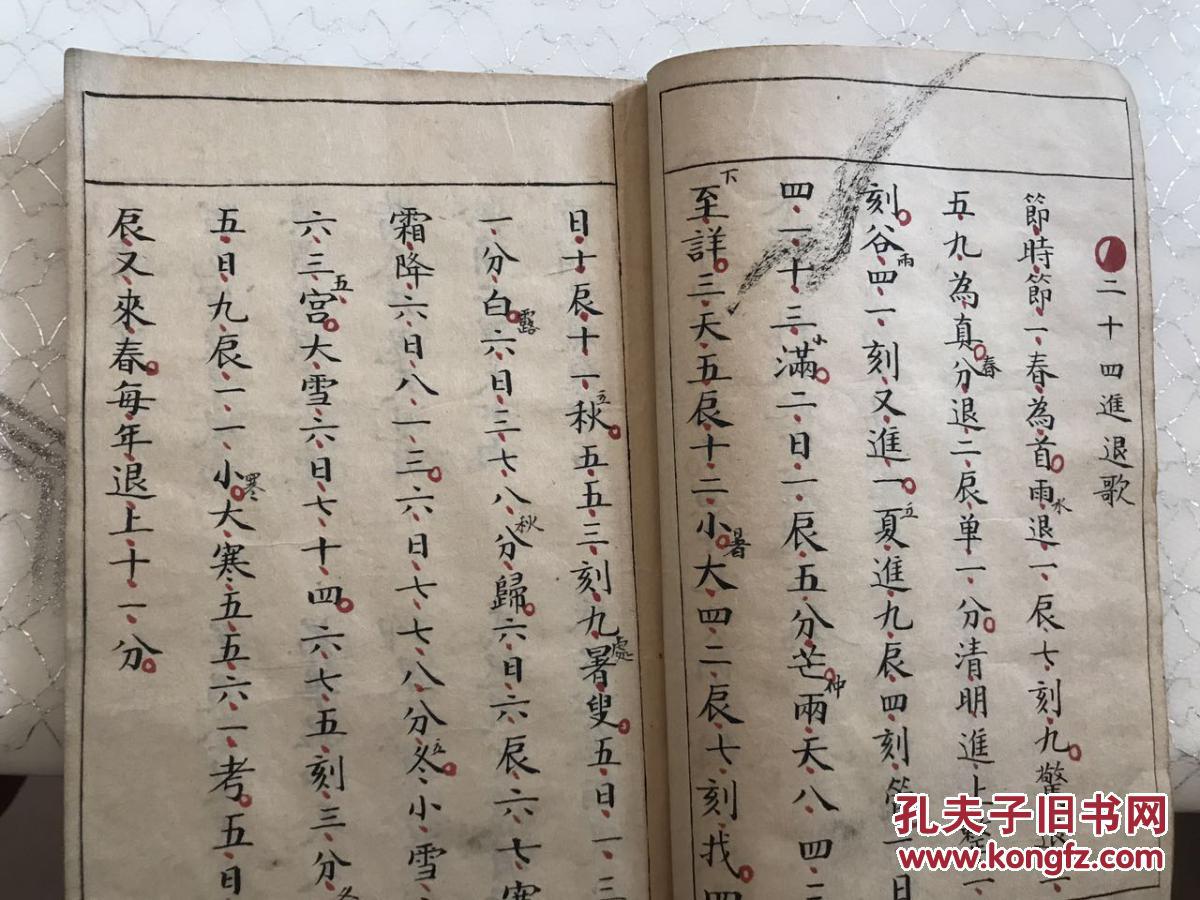 二十四進退歌
節時節一春為首雨水退一辰七刻九驚退一
五九為真分春退二辰单一分清明進上
刻谷雨四一刻又進一夏立進九辰四刻
四一十三滿小二日一辰五分芒种兩天八四二
至下詳三天五辰十二小暑大四二辰七刻找四
日十辰十一秋立五五三刻九暑處叟五日一三
一分白露六日三七八分秋歸六日六辰六七寒
霜降六日八一三六日七七八分冬立小雪
六三宫五大雪六日七十四六七五刻三分冬
五日九辰一一小寒大寒五五六一考五日
辰又來春每年退上十一分
孔夫子旧书网
www.kongfz.com